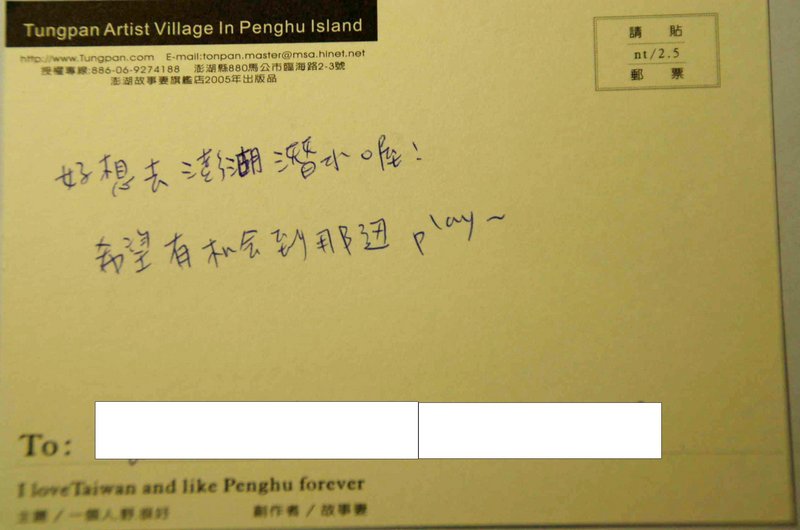 Tungpan Artist Village In Penghu Island
http://www.Tungpan.com E-mail:tonpan.master@msa.hinet.net
授權專線:886-06-9274188 澎湖縣880馬公市臨海路2-3號
澎湖故事妻旗艦店2005年出版品
請貼
nt/2.5
郵票
好想去澎湖潛水喔!
希望有机会到那边play~
To:
I love Taiwan and like Penghu forever
主題/一個人野很好
創作者/故事妻